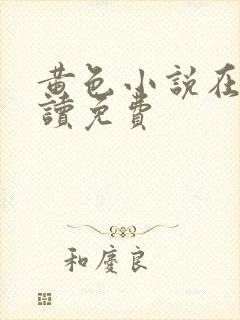 黃色小說在
讀免費
和慶良